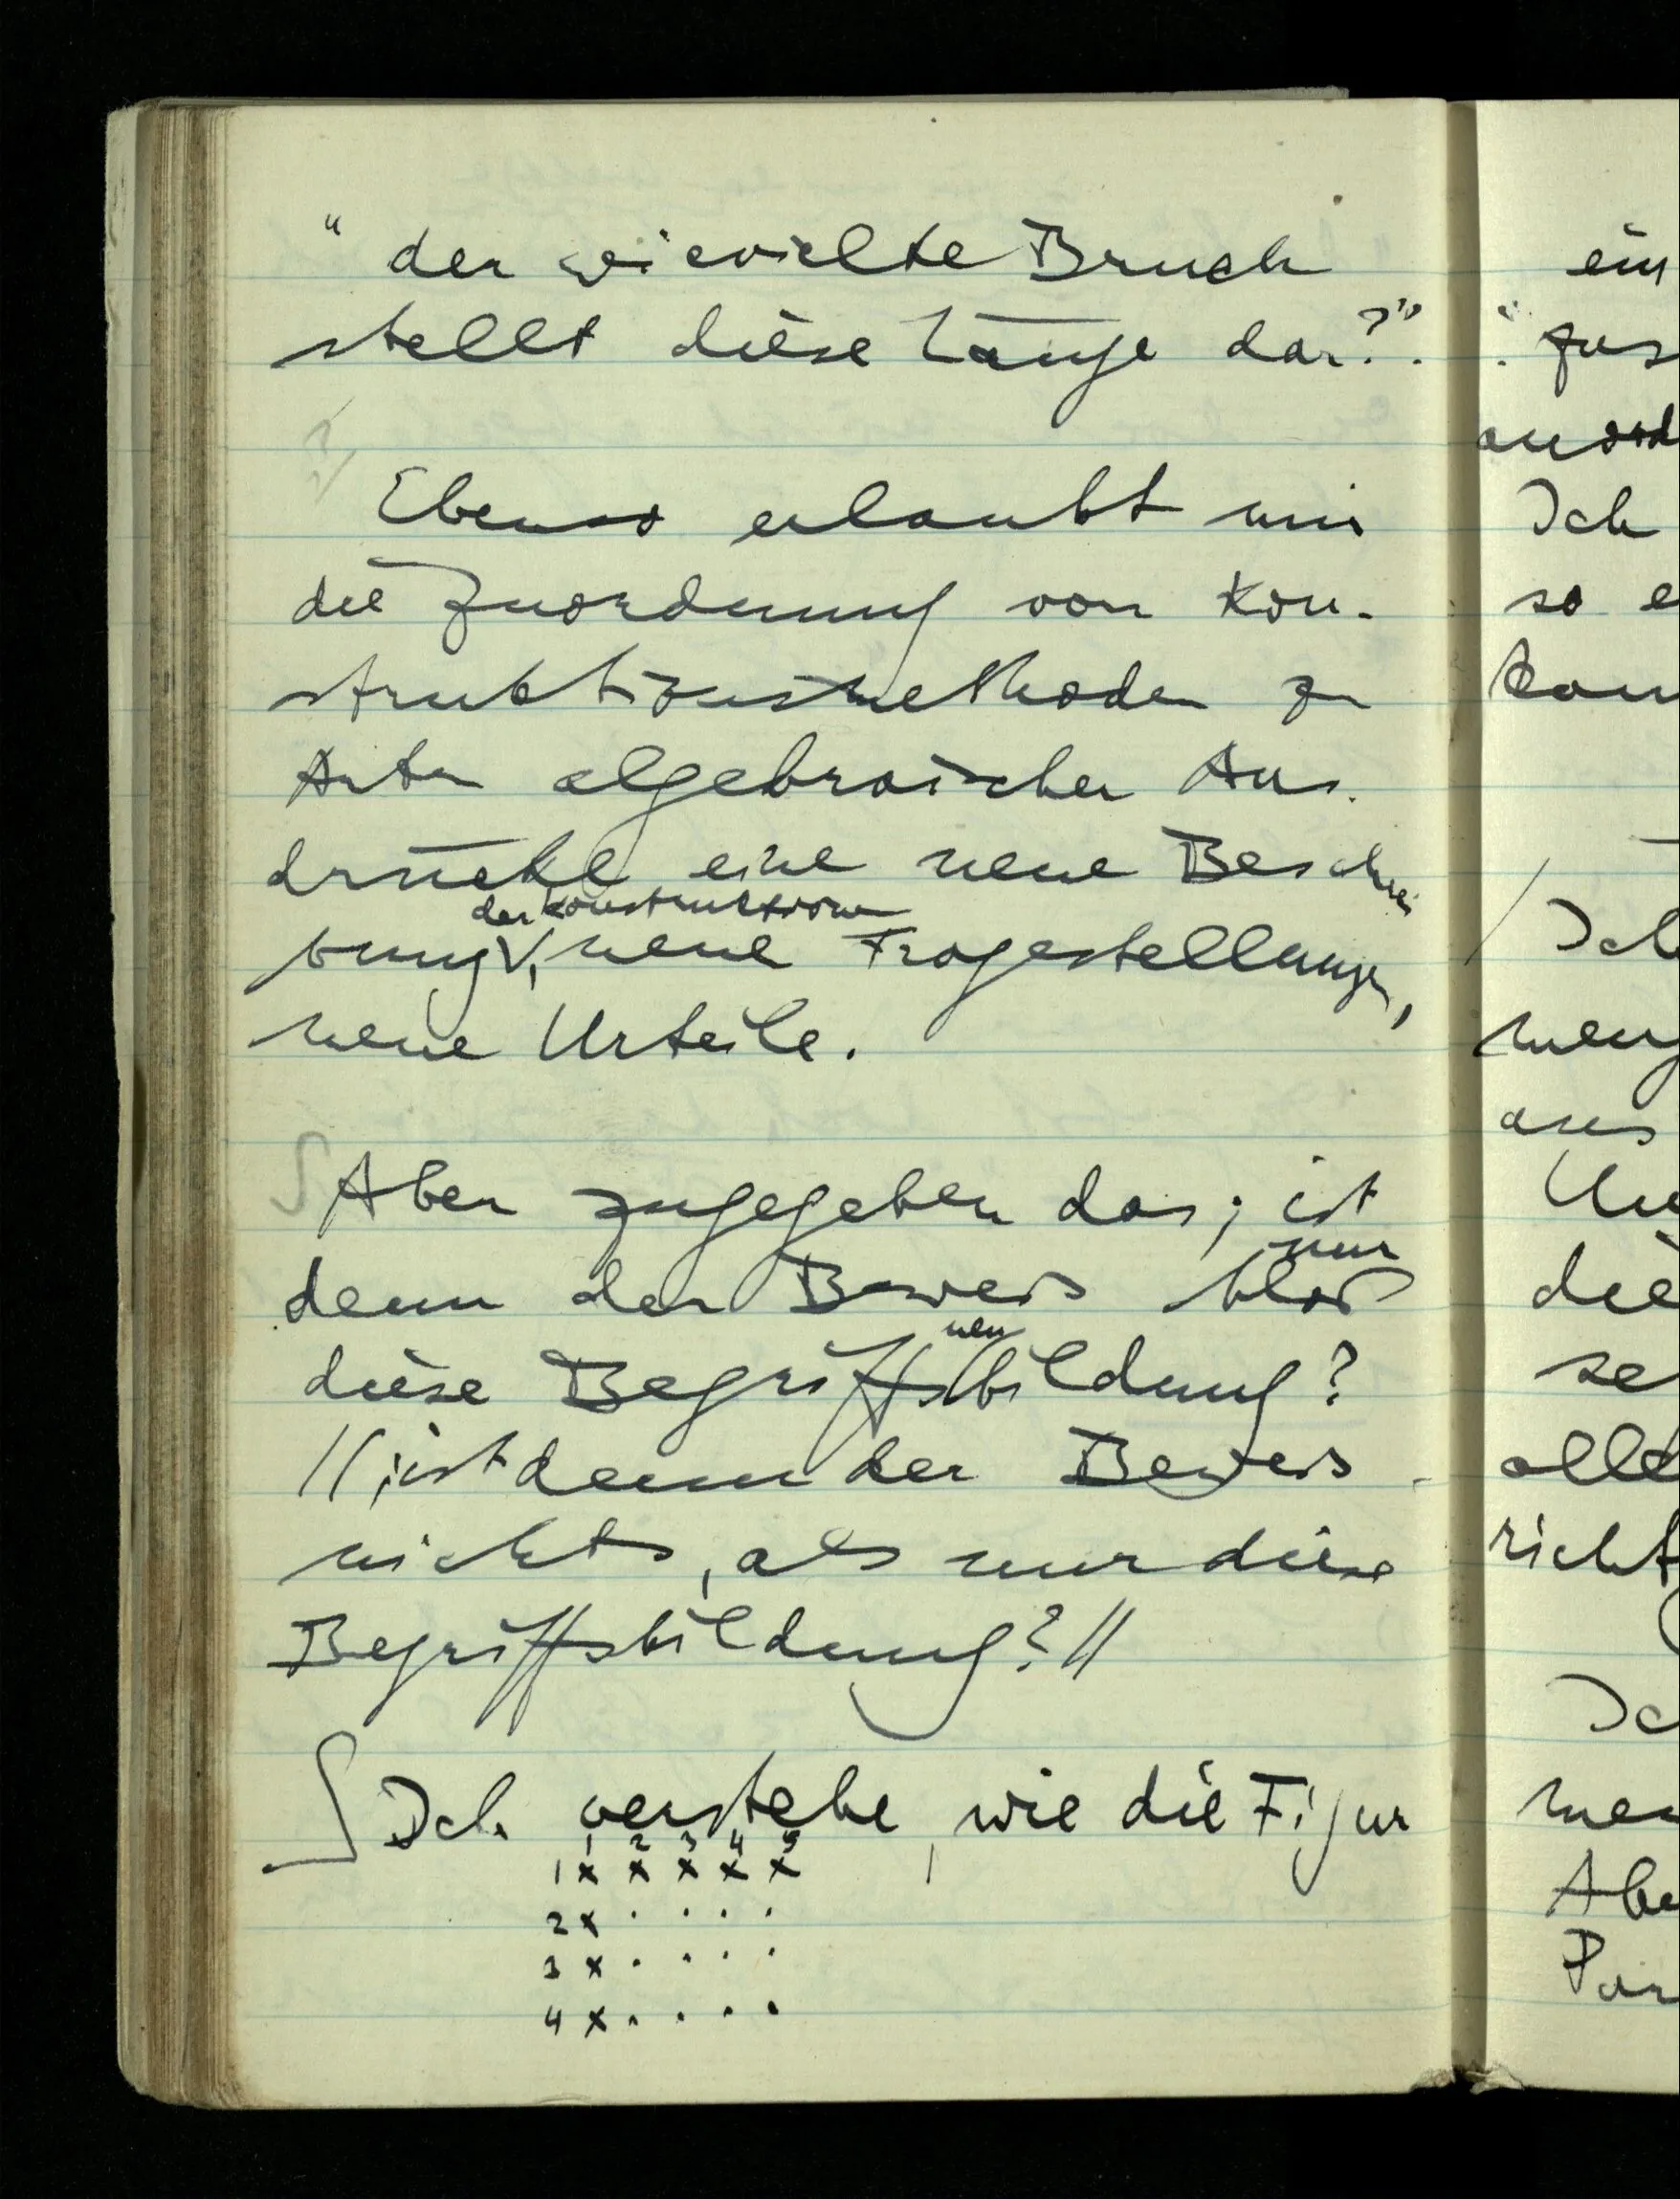 “der wievielte Bruch
stellt diese Länge dar?”.
Ebenso erlaubt mir
die Zuordnung von Kon-
struktionsmethoden zu
Arten algebraischer Aus-
drücke eine neue Beschrei
der Konstruktion
bung, neue Fragestellungen,
neue Urteile.
∫ Aber zugegeben das; ist
nur
denn der Beweis bloß
neu
diese Begriffsbildung?
//; ist denn der Beweis
nichts, als nur diese
Begriffsbildung? //
∫ Ich verstehe, wie die Figur
1 2 3 4 5
1 x x x x x
2 x · · · ·
3 x · · · ·
4 x · · · ·
ein
“ zus
anord
Ich
so e
kann
/ Ich
aus
die
se
alle
richt
Abe